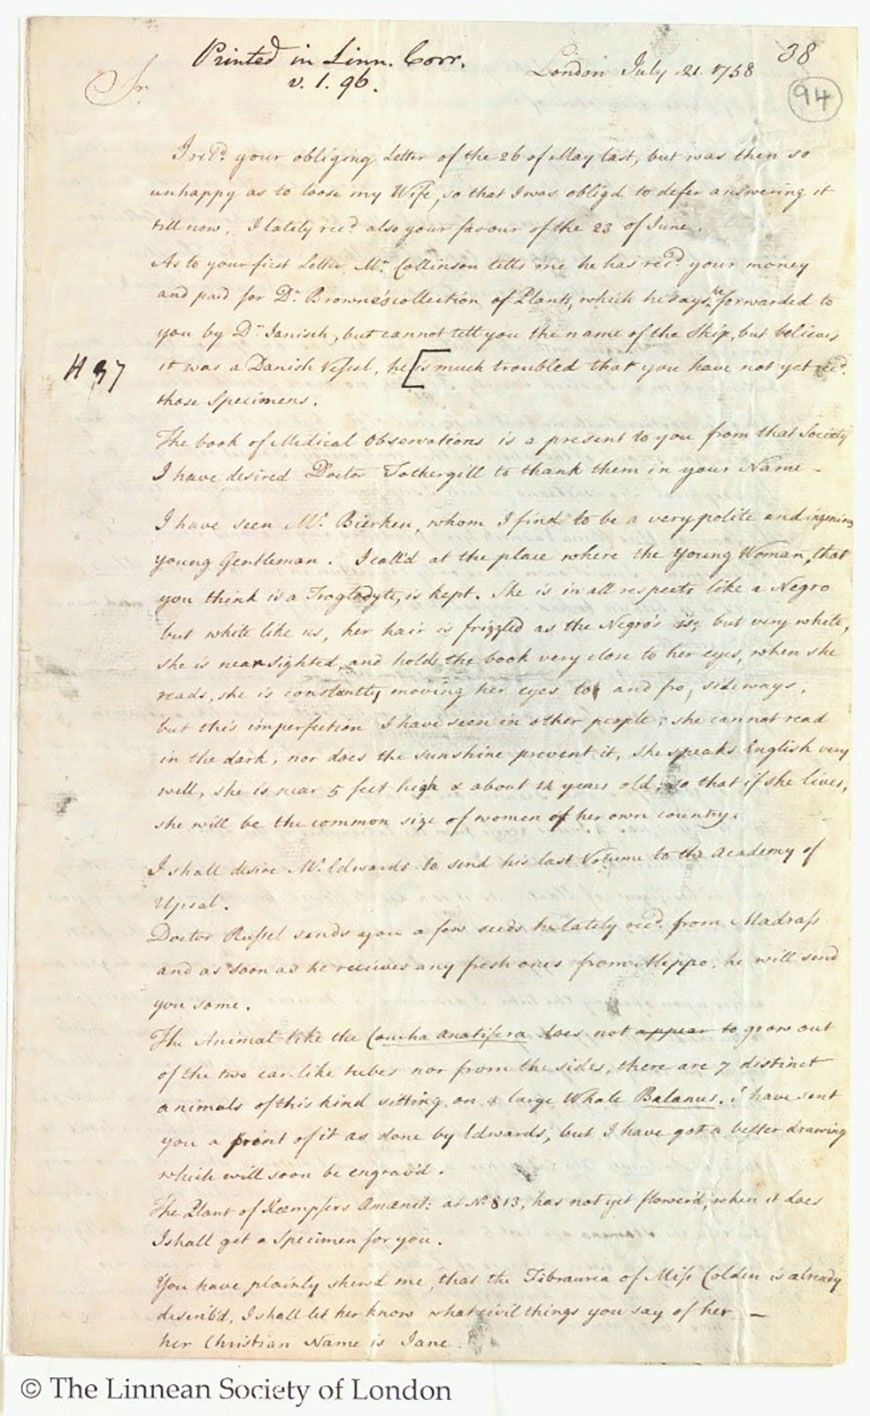 Printed in Linn. Corr.
v. 1. 96.
38
London July 21. 1758
94
Sr.
I recd. your obliging Letter of the 26 of May last, but was then so
unhappy as to loose my Wife, so that I was obligd to defer answering it
till now. I lately recd also your favour of the 23 of June.
As to your first Letter, Mr. Collinson tells me he has recd your money
and paid for Dr. Browne's collection of Plants, which he says he forwarded to
you by Dr. Janisch, but cannot tell you the name of the Ship, but believes
H 37
it was a Danish Vessel, he [is much troubled that you have not yet recd.
those Specimens.
The book of Medical Observations is a present to you from that Society
I have desired Doctor Fothergill to thank them in your Name –
I have seen Mr. Bierken, whom I find to be a very polite and ingenious
young Gentleman. I call'd at the place where the Young Woman, that
you think is a Troglodyte, is kept. She is in all respects like a Negro
but white like us, her hair is frizzled as the Negro's is, but very white,
she is near sighted, and holds the book very close to her eyes, when she
reads, she is constantly moving her eyes to and fro, sideways,
but this imperfection I have seen in other people; she cannot read
in the dark, nor does the sunshine prevent it, she speaks English very
well, she is near 5 feet high & about 12 years old, so that if she lives,
she will be the common size of women of her own country.
I shall desire Mr. Edwards to send his last Volume to the Academy of
Upsal.
Doctor Russel sends you a few seeds he lately recd. from Madrass
and as soon as he receives any fresh ones from Aleppo, he will send
you some.
The Animal like the Concha anatifera does not appear to grow out
of the two ear-like tubes nor from the sides, there are 7 distinct
animals of this kind sitting on a large Whale Balanus. I have sent
you a print of it as done by Edwards, but I have got a better drawing
which will soon be engrav'd.
The Plant of Kœmpfers Amœnit: at No. 813, has not yet flower'd, when it does
I shall get a Specimen for you.
You have plainly shewd me, that the Fibraurea of Miss Colden is already
describ'd, I shall let her know what civil things you say of her —
her Christian Name is Jane.
© The Linnean Society of London